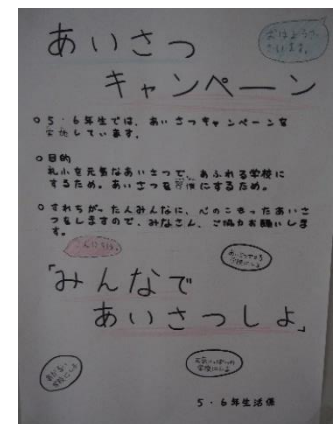 おはようございます。
あいさつ
キャンペーン
○5・6年生では、あいさつキャンペーンを
実施しています。
○目的
札小を元気なあいさつで、あふれる学校に
するため。あいさつを習慣にするため。
○すれちがったみんなに、心のこもったあいさ
つをしますので、みなさん、ご協力お願いしま
す。
こんにちは。
「みんなで
あいさつしよ」
5・6年生活係